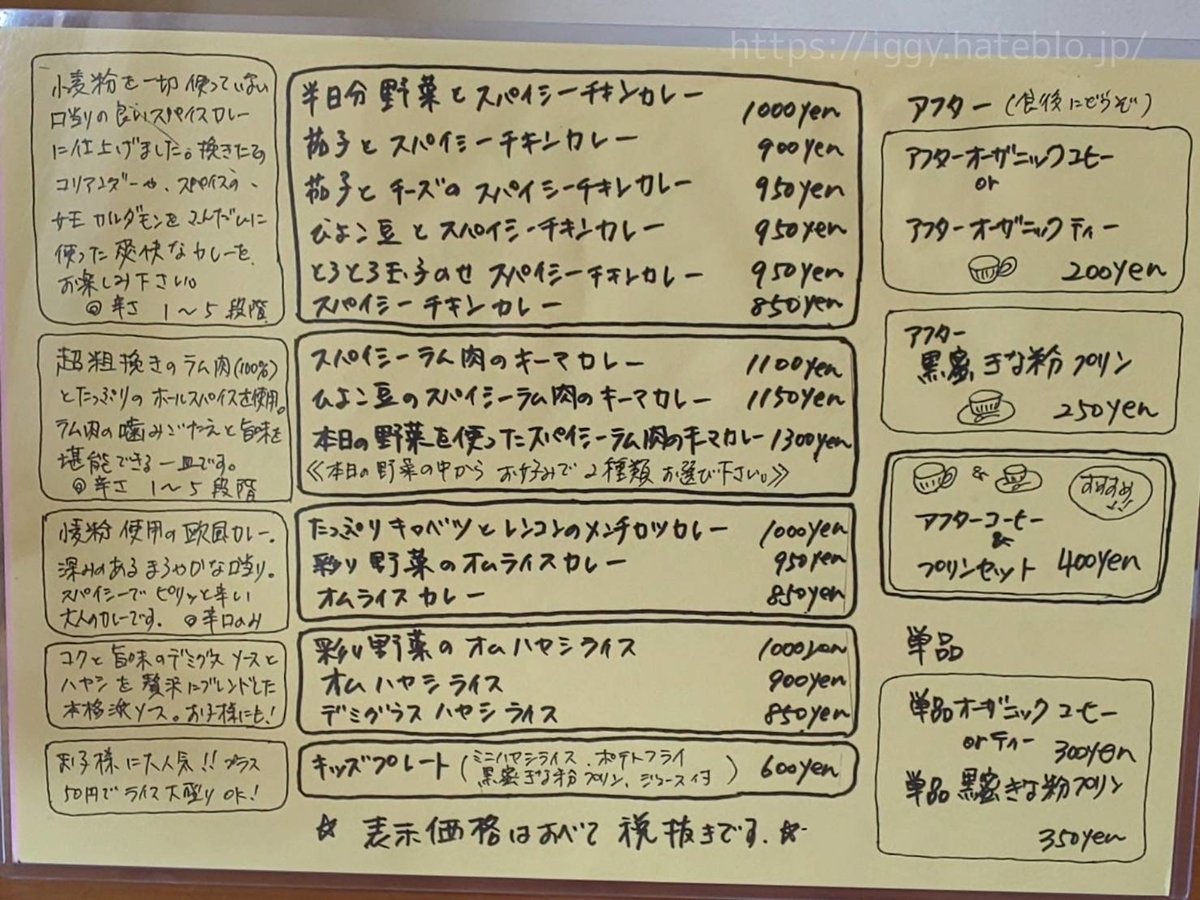 https://iggy.hateblo.jp/
小麦粉を一切使っていない
口当りの良いスパイスカレー
に仕上げました。挽きたての
コリアンダーや、スパイスの
女王カルダモンをふんだんに
使った爽快なカレーを、
お楽しみ下さい。
◎辛さ 1〜5段階
半日分野菜とスパイシーチキンカレー 1000yen
茄子とスパイシーチキンカレー 900yen
茄子とチーズのスパイシーチキンカレー 950yen
ひよこ豆とスパイシーチキンカレー 950yen
とろとろ玉子のせスパイシーチキンカレー 950yen
スパイシーチキンカレー 850yen
超粗挽きのラム肉(100%)
とたっぷりのホールスパイスを使用。
ラム肉の噛みごたえと旨味を
堪能できる一皿です。
◎辛さ 1〜5段階
スパイシーラム肉のキーマカレー 1100yen
ひよこ豆のスパイシーラム肉のキーマカレー 1150yen
本日の野菜を使ったスパイシーラム肉のキーマカレー 1300yen
《本日の野菜の中からお好みで2種類お選び下さい。》
小麦粉使用の欧風カレー。
深みのあるまろやかな口当り。
スパイシーでピリッと辛い
大人のカレーです。◎辛口のみ
たっぷりキャベツとレンコンのメンチカツカレー 1000yen
彩り野菜のオムライスカレー 950yen
オムライスカレー 850yen
コクと旨味のデミグラスソースと
ハヤシを贅沢にブレンドした
本格派ソース。お子様にも!
彩り野菜のオムハヤシライス 1000yen
オムハヤシライス 900yen
デミグラスハヤシライス 850yen
お子様に大人気!!プラス
50円でライス大盛りOK!
キッズプレート(ミニハヤシライス、ポテトフライ
黒蜜きな粉プリン、ジュース付) 600yen
☆表示価格はすべて税抜きです.☆
アフター(食後にどうぞ)
アフターオーガニックコーヒー
or
アフターオーガニックティー
200yen
アフター
黒蜜きな粉プリン
250yen
&
おすすめ♪♪
アフターコーヒー
&
プリンセット 400yen
単品
単品オーガニックコーヒー
orティー 300yen
単品黒蜜きな粉プリン
350yen